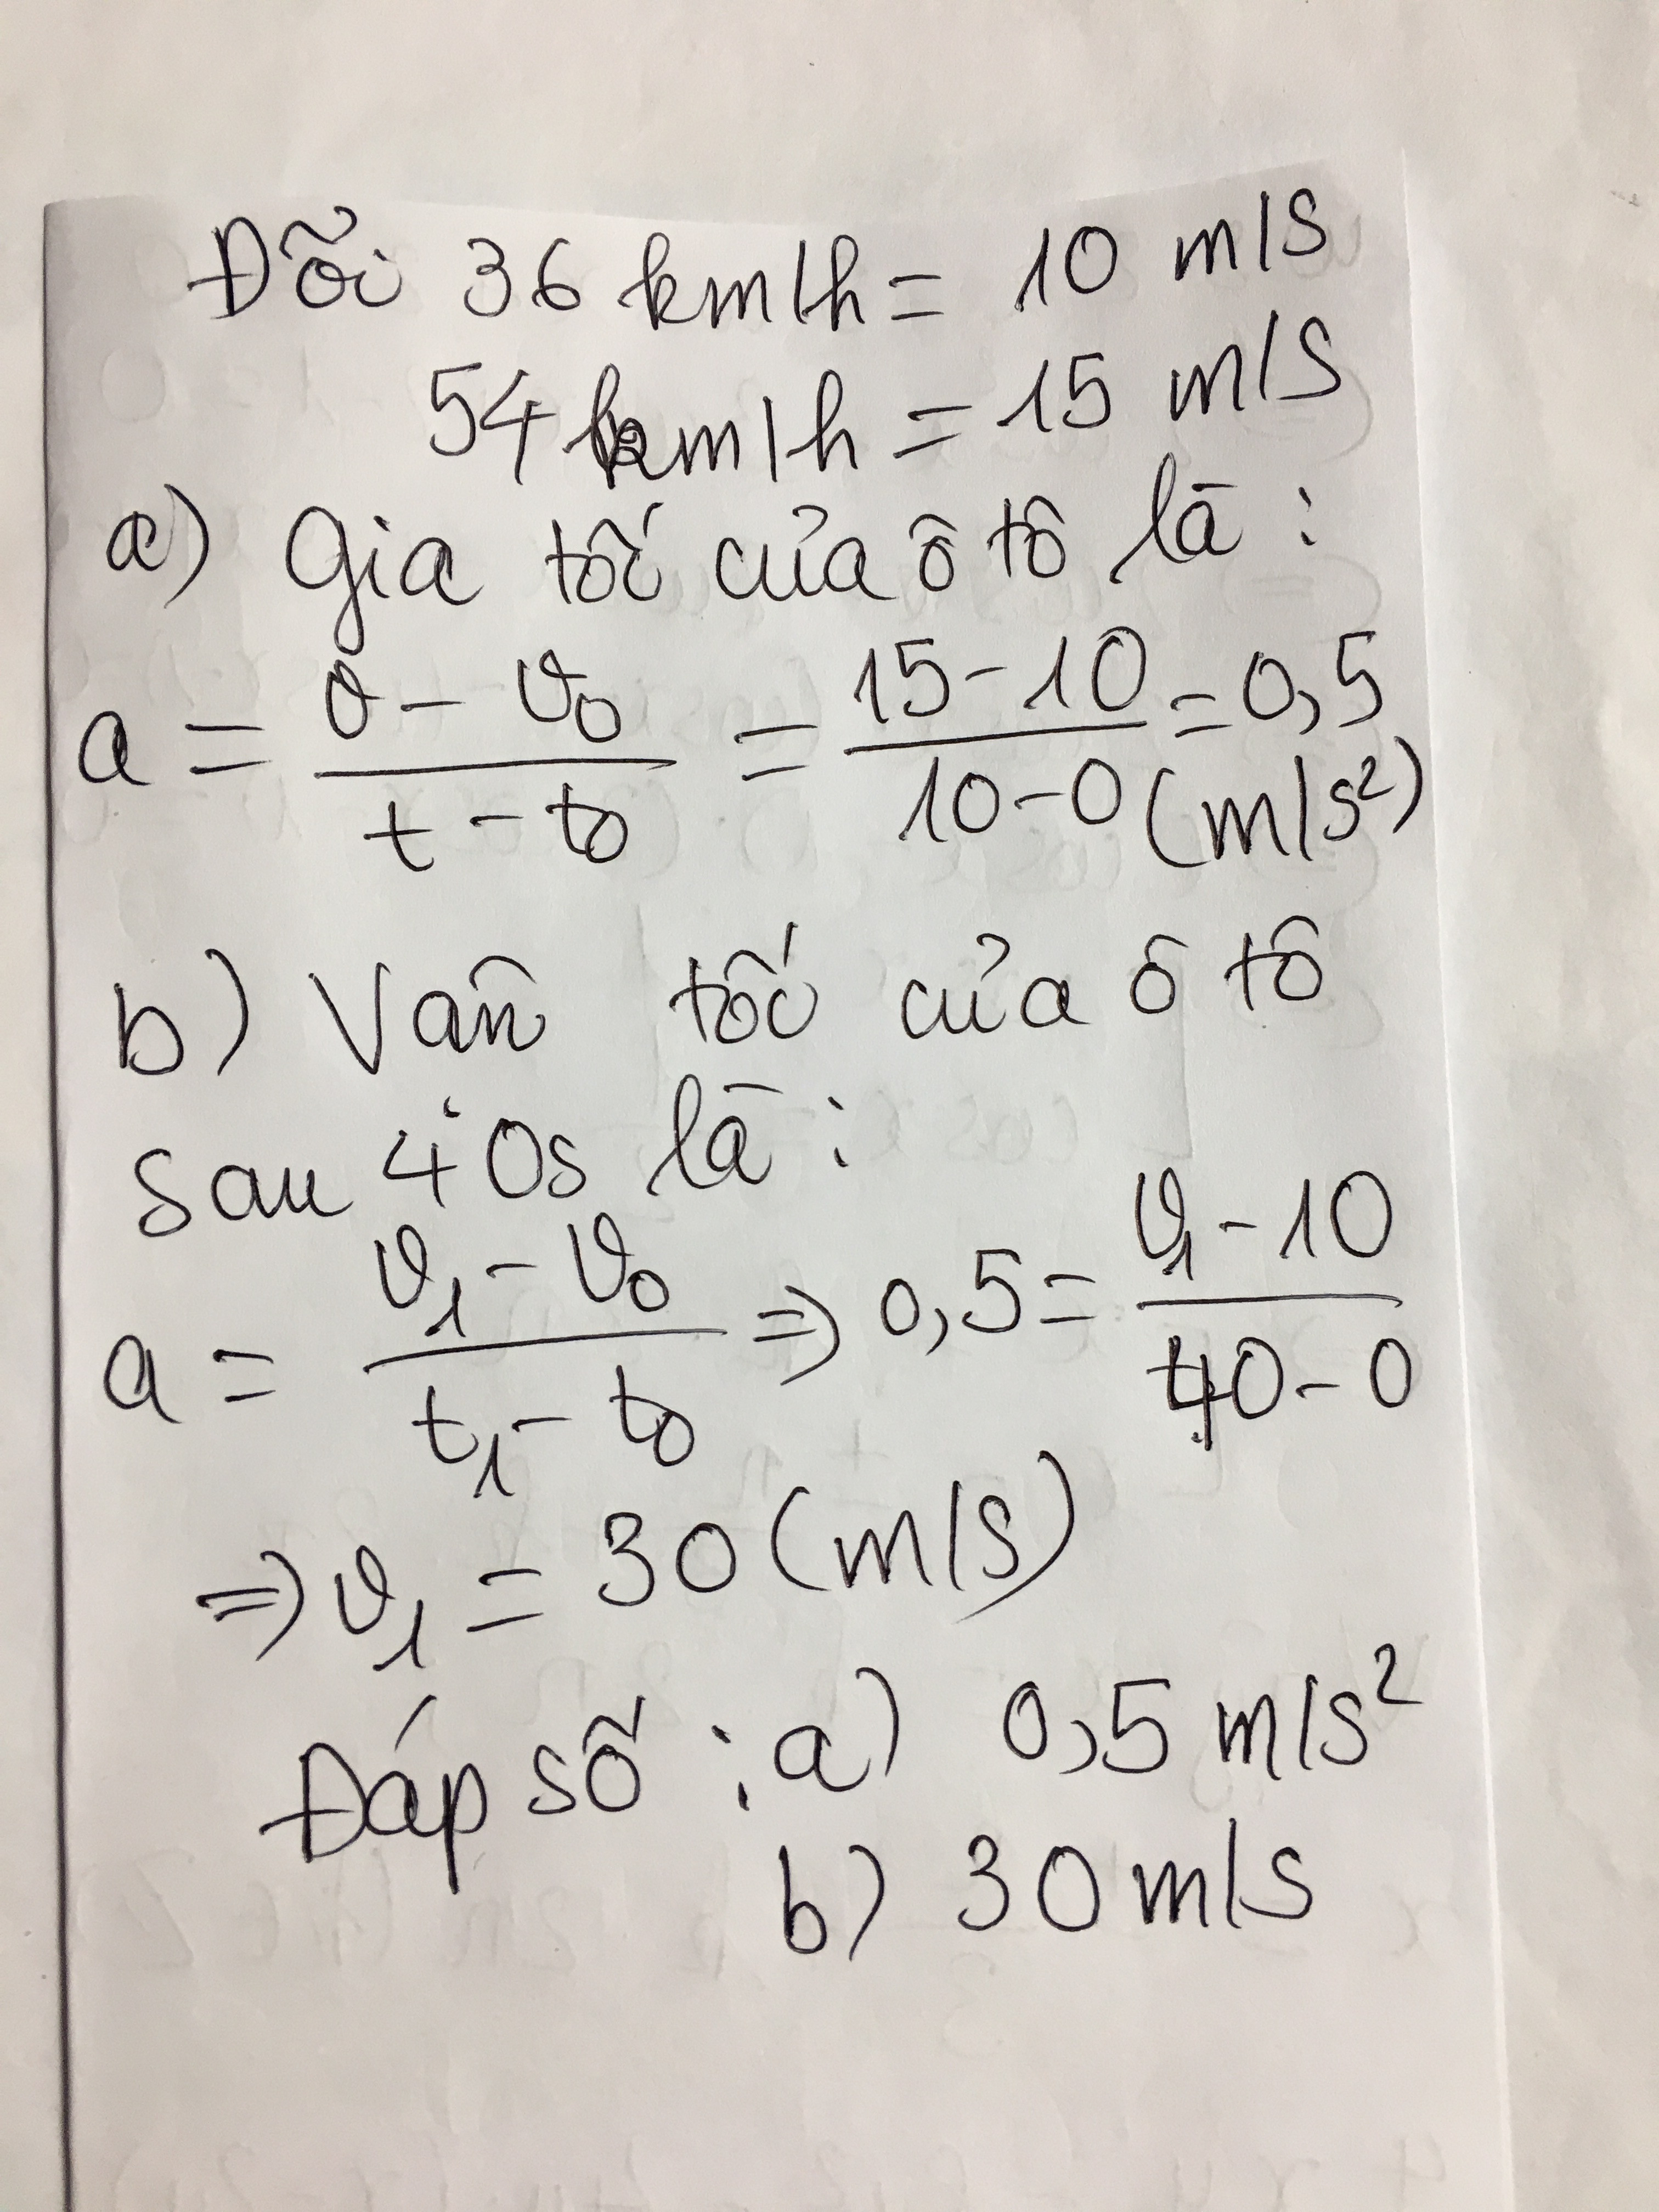 Đổi 36 km/h = 10 m/s
54 km/h = 15 m/s
a) Gia tốc của ô tô là :
a = (v - v₀)/(t - t₀) = (15 - 10)/(10 - 0) = 0,5 (m/s²)
b) Vận tốc của ô tô
sau 40s là :
a = (v₁ - v₀)/(t₁ - t₀) => 0,5 = (v₁ - 10)/(40 - 0)
=> v₁ = 30 (m/s)
Đáp số : a) 0,5 m/s²
b) 30 m/s